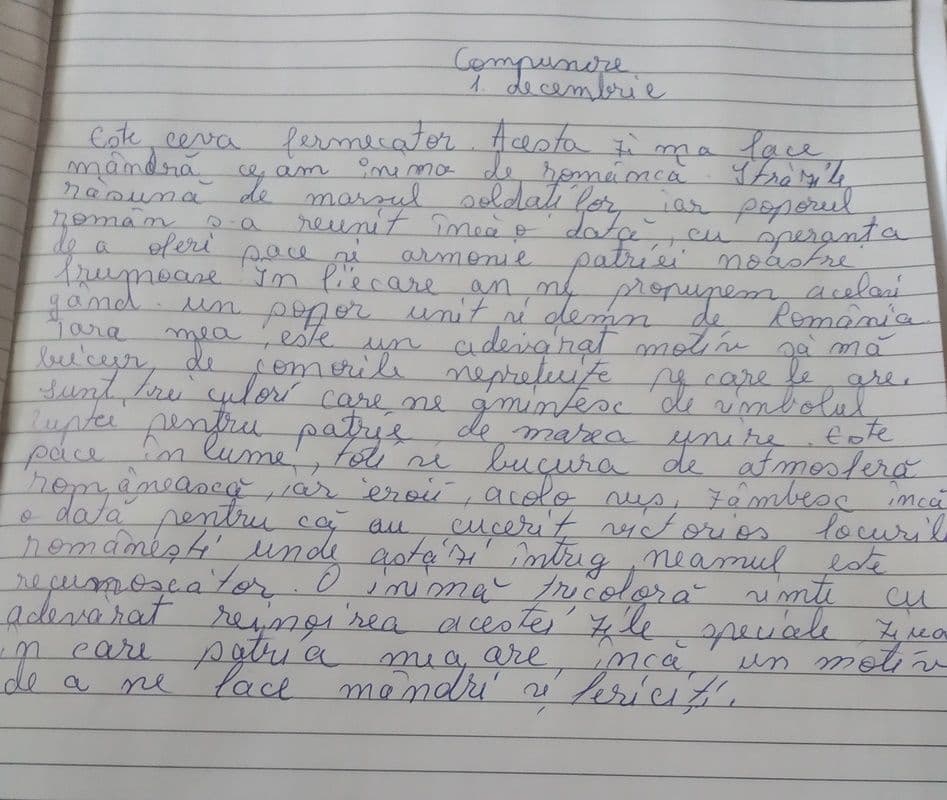 Compunere
1. decembrie
Este ceva fermecator. Acesta zi ma face
mândră ce am inima de româncă. Străzile
răsună de marsul soldatilor, iar poporul
român s-a reunit încă o dată, cu speranta
de a oferi pace si armonie patriei noastre
frumoase În fiecare an ne propunem acelasi
gând. un popor unit si demn de România
Tara mea, este un adevărat motiv să mă
bucur, de comorile nepretuite pe care le are.
Sunt trei culori care ne amintesc de simbolul
luptei pentru patrie, de marea unire. Este
pace în lume, toti se bucura de atmosferă
românească, iar eroii, acolo sus, zâmbesc încă
o dată pentru că au cucerit victorios locuril
românești unde astăzi întrig neamul este
recumoscător. O inimă tricoloră simte cu
adevarat reîmoirea acestei zile speciale, ziua
în care patria mea are, încă, un motiv
de a ne face mândri și fericiți.